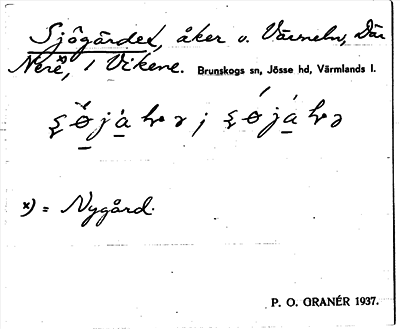 Sjögärdet, åker v. Värmeln, Där
Nere x), i Vikene. Brunskogs sn, Jösse hd, Värmlands l.
x) = Nygård.
P. O. GRANÉR 1937.